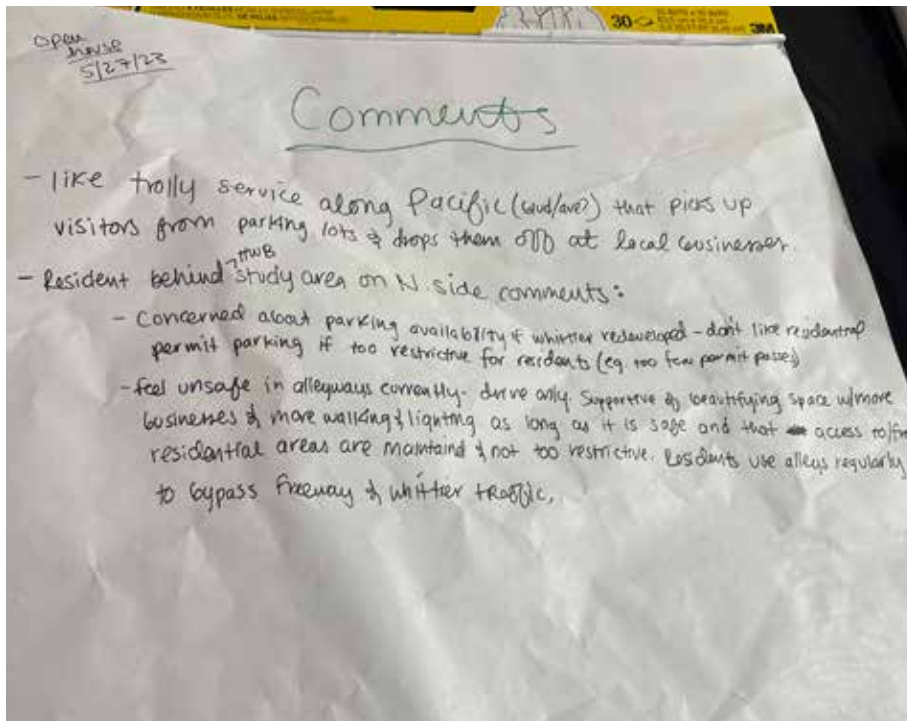 30
3M
Open
house
5/27/23
Comments
- like trolly service along Pacific (blvd/ave?) that picks up
visitors from parking lots & drops them off at local businesses.
- Resident behind HWB study area on N side comments:
- Concerned about parking availability if whittier redeveloped - don't like residential
permit parking if too restrictive for residents (eg. too few permit passes)
- feel unsafe in alleyways currently - drive only. Supportive of beautifying space w/more
businesses & more walking & lighting as long as it is safe and that access to/
residential areas are maintaind & not too restrictive. Residents use alleys regularly
to bypass freeway & whittier traffic.